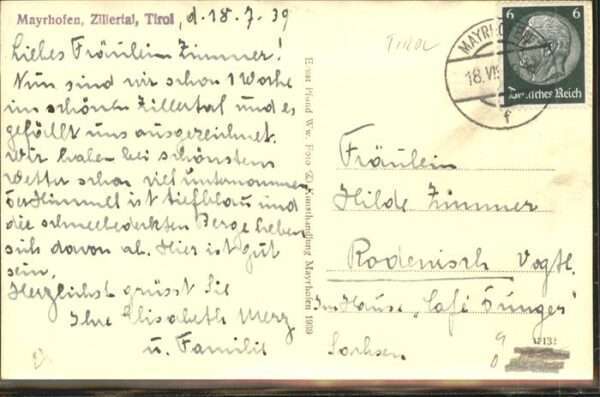 Mayrhofen, Zillertal, Tirol, d. 18. 7. 39
Liebes Fräulein Zimmer!
Nun sind wir schon 1 Woche
im schönen Zillertal und es
gefällt uns ausgezeichnet.
Wir haben bei schönstem
Wetter schon viel unternommen,
der Himmel ist tiefblau und
die schneebedeckten Berge heben
sich davon ab. Hier ist gut
sein.
Herzlichst grüsst Sie
Ihre Elisabeth Merz
u. Familie
Kunsthandlung Mayrhofen 1939
TIROL
MAYRHO
18. VII
f
6 6
Deutsches Reich
Fräulein
Hilde Zimmer
Rodewisch Vogtl.
Im Hause „Café Dunger"
Sachsen